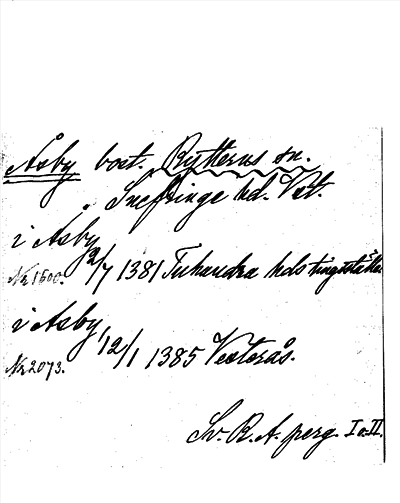 Åsby bost. Rytterns sn.
Snefringe hd. Vstl.
i Asby 2/7 1381 Tuhundra hds tingställe
No 1500.
i Asby, 12/1 1385 Vesterås.
No 2073.
Sv. R. A. perg. I o. II.